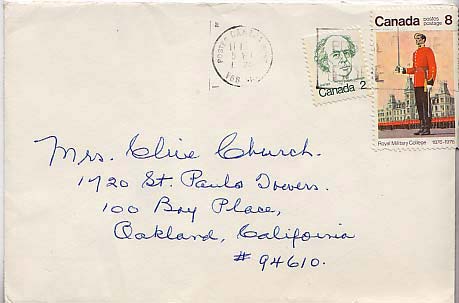 Canada postes postage 8
Canada 2
Royal Military College 1876-1976
Mrs. Clive Church.
1720 St. Paulos Towers.
100 Bay Place,
Oakland, California
# 94610.